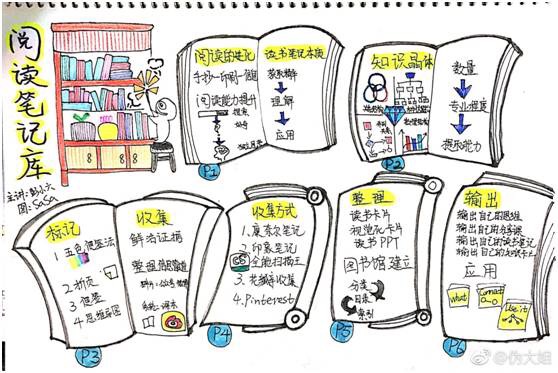 阅读笔记库
图:SaSa
阅读的进化
手抄—印刷—智能
阅读能力提升
搜索
P1
读书笔记本质
教练精华
理解
应用
知识晶体
P2
数量
专业程度
提取能力
标记
1.五色便签法
2.折页
3.便签
4.思维导图
P3
收集
鲜活证据
整理
收集方式
1.康奈尔笔记
2.印象笔记
CS 全能扫描王
3.关键词收集
4.Pinterest
P4
整理
读书卡片
视觉化卡片
读书PPT
图书馆建立
分类
目录
索引
P5
输出
输出自己的思维
输出自己的读书笔记
输出自己的知识卡片
应用
what
use it
P6
@伪大姐